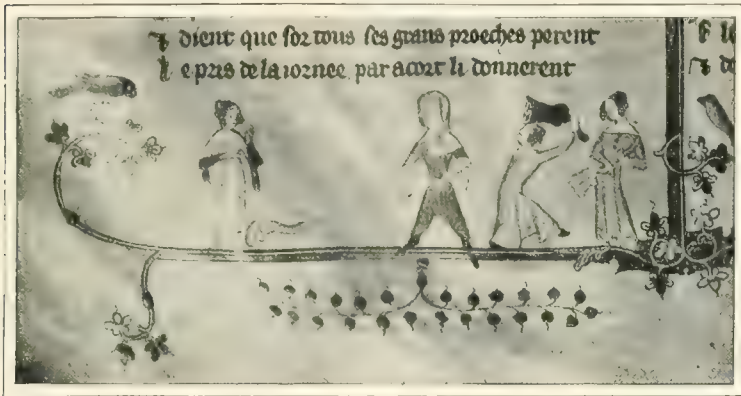 ⁊ dient que sor tous ses grans proeches perent
l e pris de la iornee par acort li donnerent